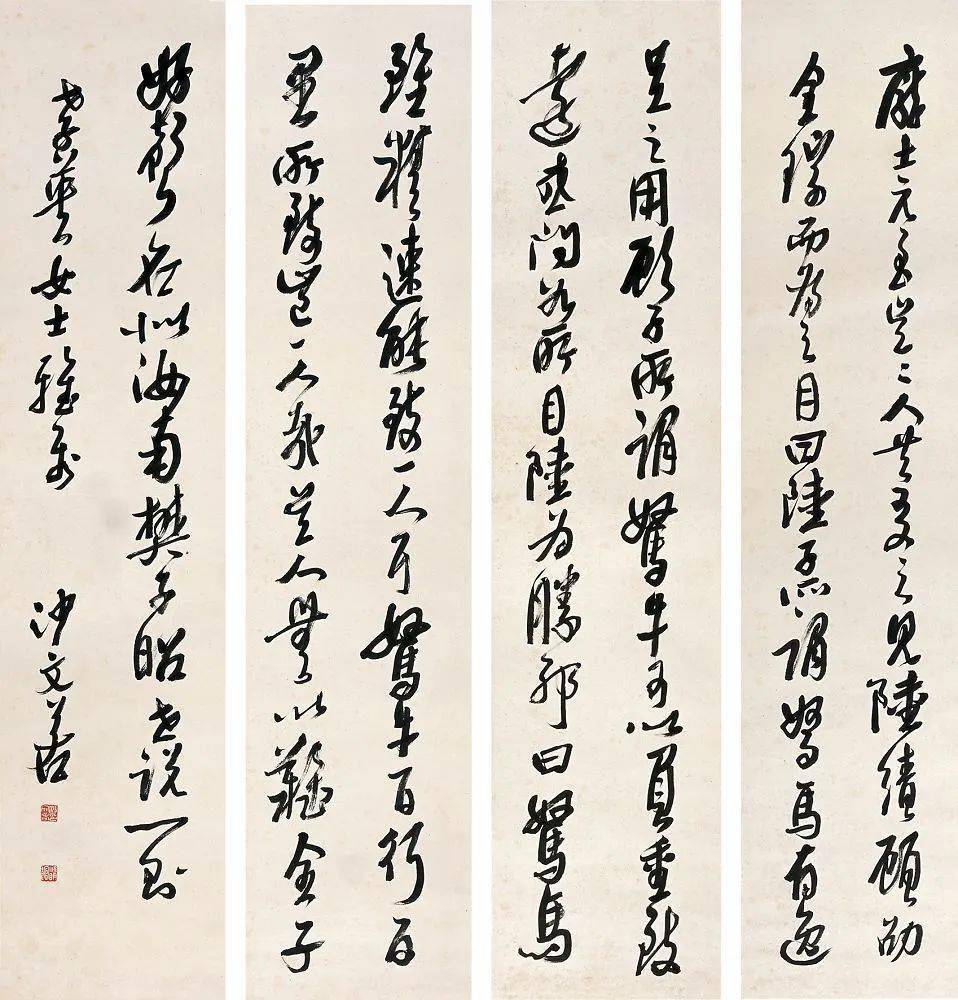 龐士元至吳〻人共友之見陸績顧劭
全琮而為之目曰陸子所謂駑馬有逸
足之用顧子所謂駑牛可以負重致
遠或問如所目陸為勝邪曰駑馬
雖精速能致一人耳駑牛一日行百
里所致豈一人哉吳人無以難全子
好聲名似汝南樊子昭世說一則
女士雅屬 沙文若